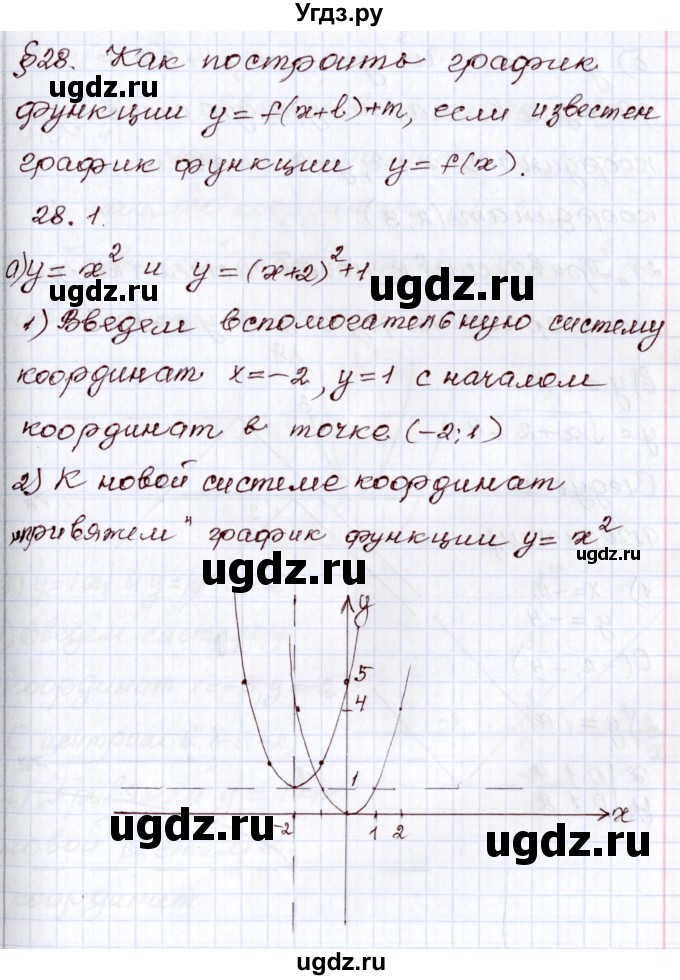 Угдз.ру
§28. Как построить график
угдз.ru угдз.ru
функции y = f(x+l)+m, если известен
график функции y = f(x).
28.1.
а) y = x² и y = (x+2)²+1
ugdz.ru ugdz.ru
1) Введем вспомогательную систему
координат x=-2, y=1 с началом
координат в точке (-2; 1)
2) К новой системе координат
„привяжем" график функции y = x²
ugdz.ru ugdz.ru
y
5
4
1
-2 1 2 x
ugdz.ru ugdz.ru
ugdz.ru